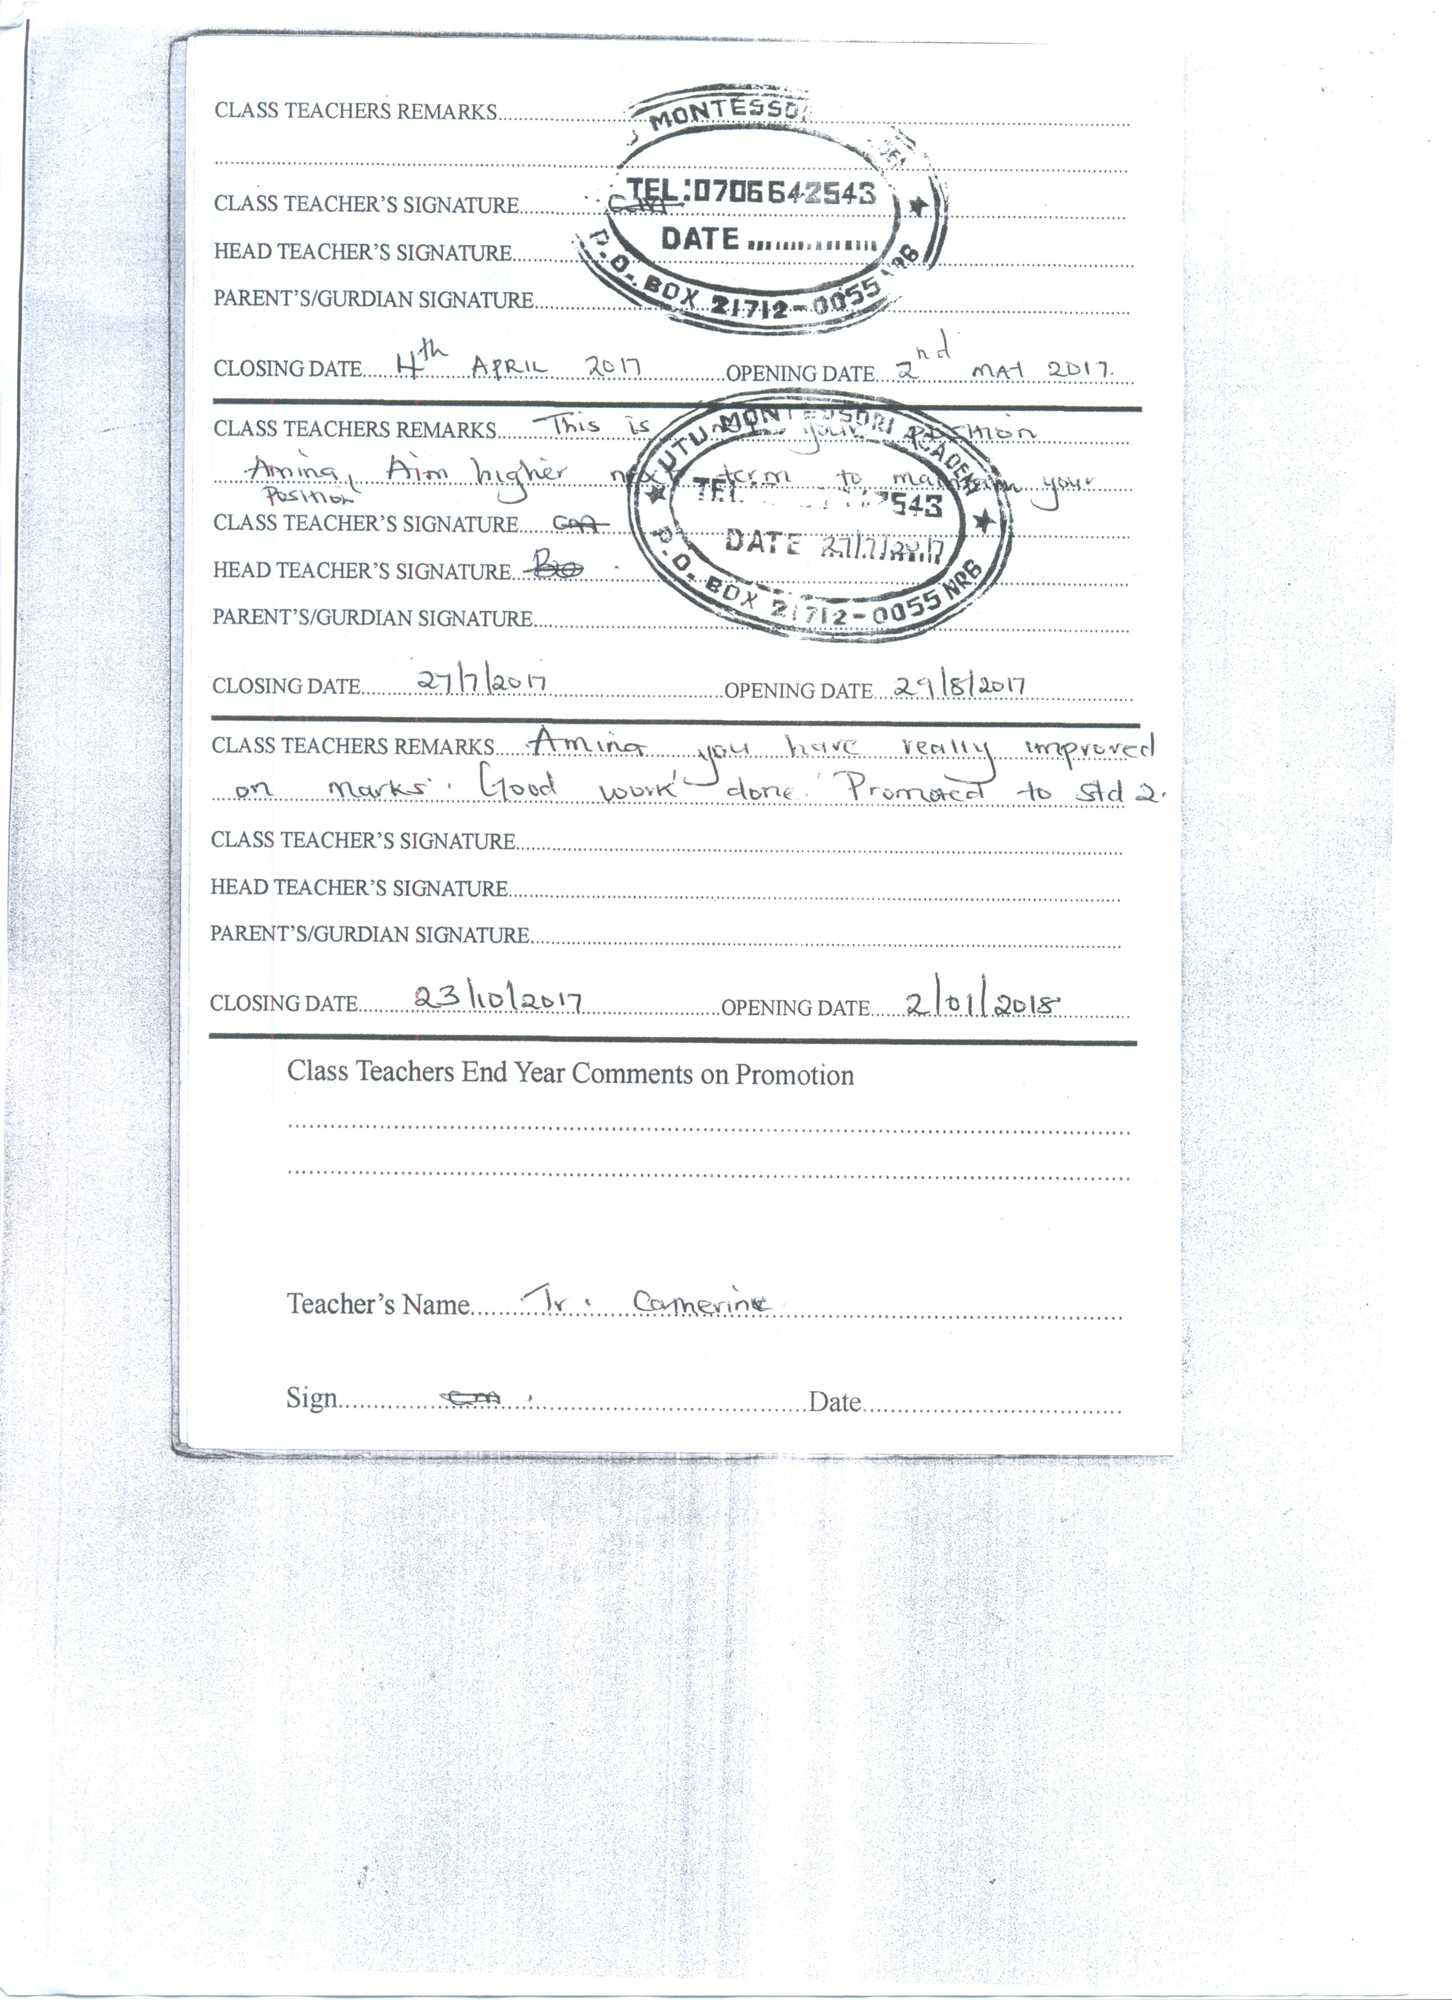 CLASS TEACHERS REMARKS
MONTESSO
CLASS TEACHER'S SIGNATURE
TEL:0706642543
HEAD TEACHER'S SIGNATURE
DATE
P.O. BOX 21712-0055 NRB
PARENT'S/GURDIAN SIGNATURE
CLOSING DATE 4th APRIL 2017 OPENING DATE 2nd MAY 2017.
CLASS TEACHERS REMARKS This is your position
UTU MONTESSORI ACADEMY
Amina, Aim higher next term to maintain your
position
TEL 543
CLASS TEACHER'S SIGNATURE
DATE 27/7/2017
HEAD TEACHER'S SIGNATURE
P.O. BOX 21712-0055 NRB
PARENT'S/GURDIAN SIGNATURE
CLOSING DATE 27/7/2017 OPENING DATE 29/8/2017
CLASS TEACHERS REMARKS Amina you have really improved
on marks. Good work done. Promoted to std 2.
CLASS TEACHER'S SIGNATURE
HEAD TEACHER'S SIGNATURE
PARENT'S/GURDIAN SIGNATURE
CLOSING DATE 23/10/2017 OPENING DATE 2/01/2018
Class Teachers End Year Comments on Promotion
Teacher's Name Tr. Catherine
Sign Date